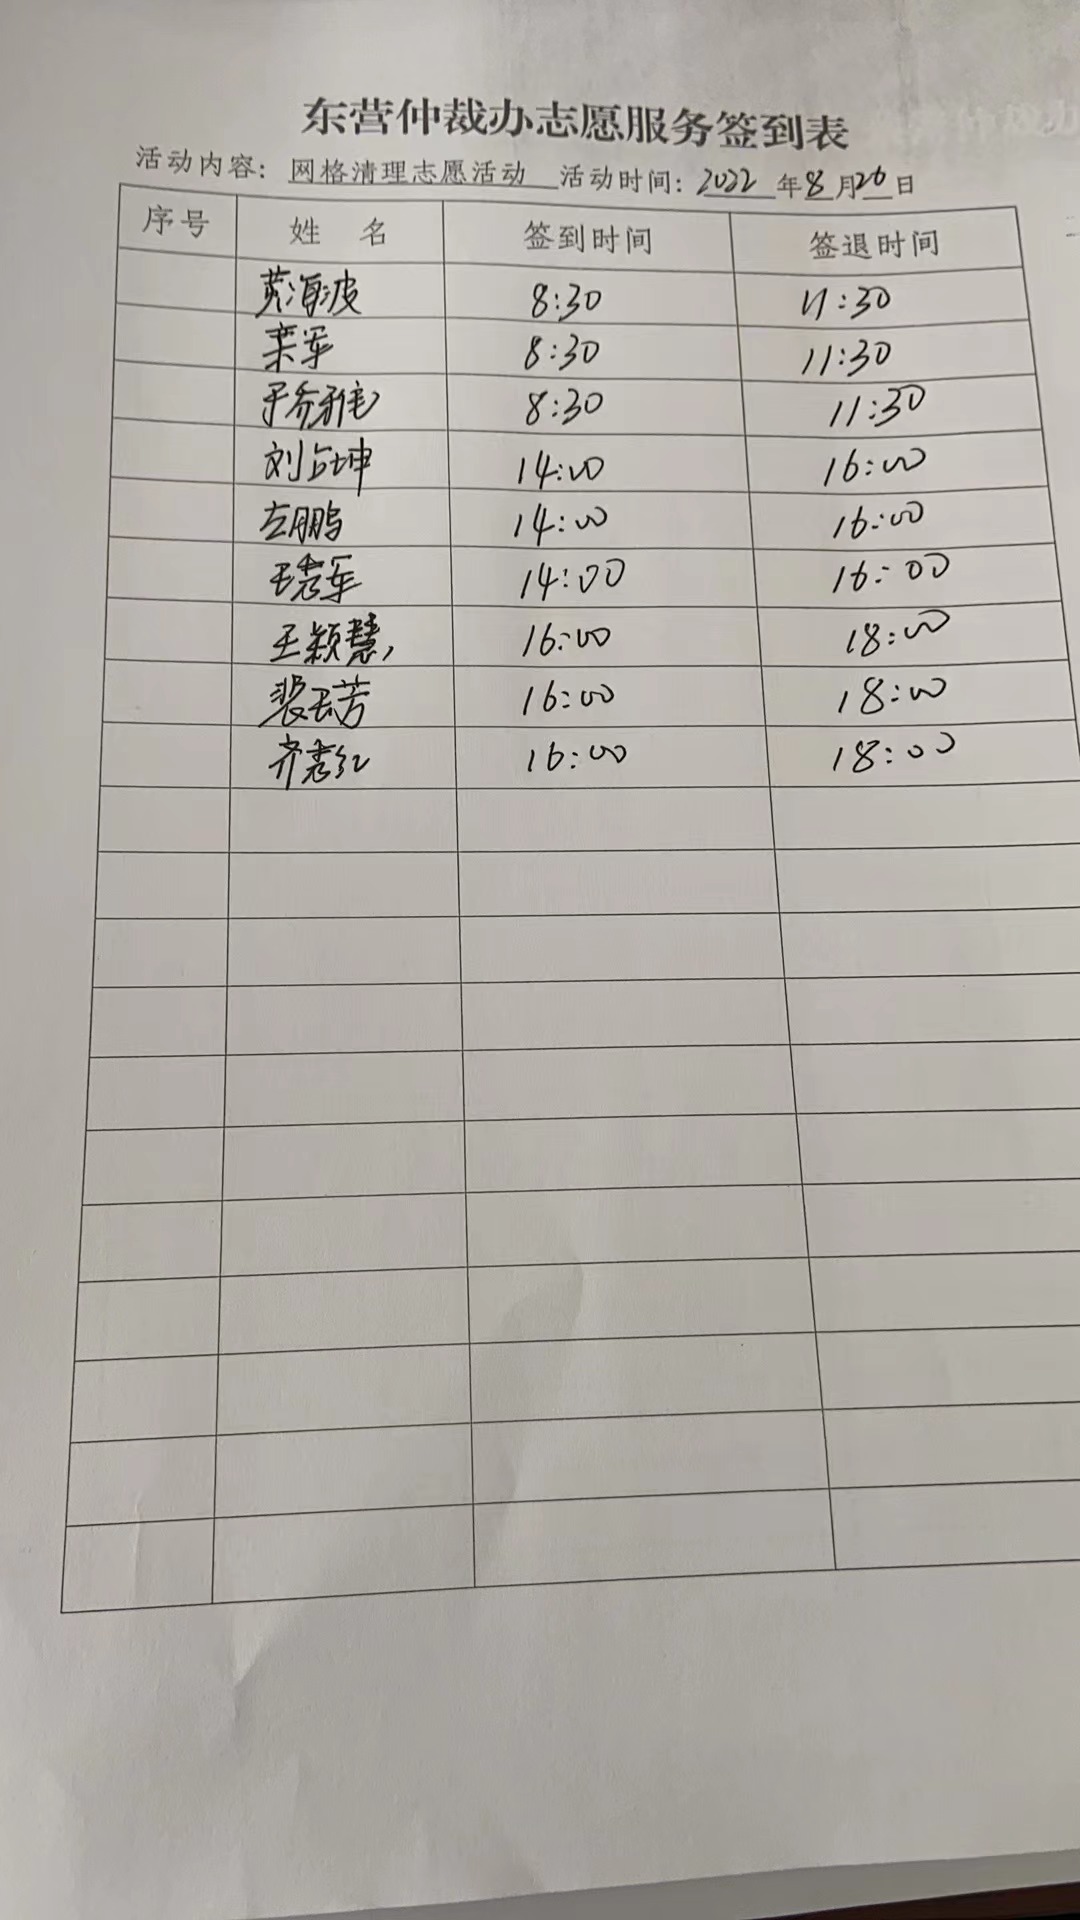 东营仲裁办志愿服务签到表
活动内容：网格清理志愿活动 活动时间：2022年8月26日
序号 姓 名 签到时间 签退时间
黄海波 8:30 11:30
栾军 8:30 11:30
于乔雅 8:30 11:30
刘占坤 14:00 16:00
左鹏 14:00 16:00
王秀军 14:00 16:00
王颖慧 16:00 18:00
裴玉芳 16:00 18:00
齐秀红 16:00 18:00